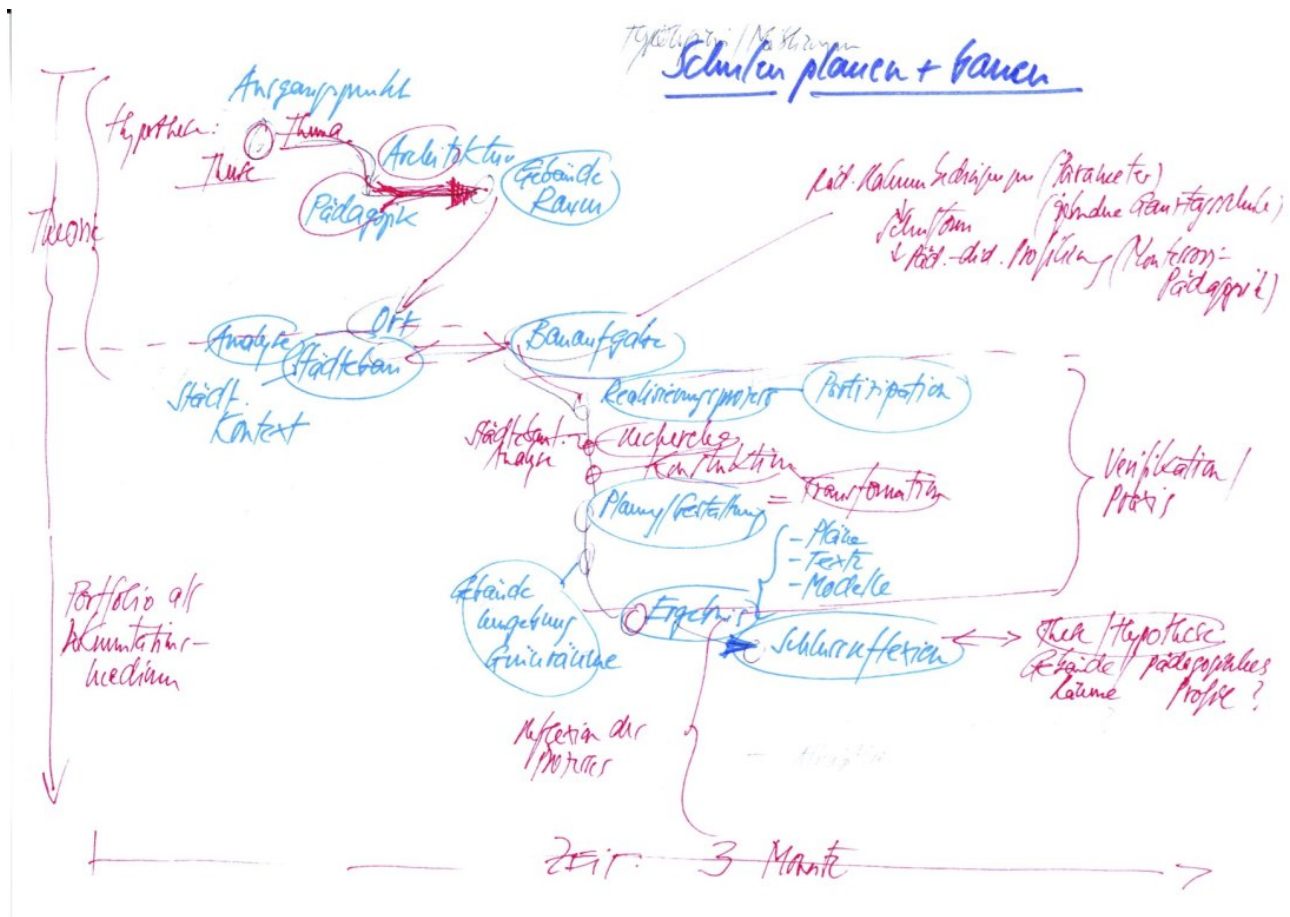 Schulen planen + bauen
Ausgangspunkt
Hypothese:
Thema
These
Architektur
Pädagogik
Gebäude
Raum
Theorie
Päd. Rahmenbedingungen (Parameter)
Schulform (gebundene Ganztagsschule)
Päd.-did. Profilierung (Montessori-
Pädagogik)
Ort
Analyse
Städtebau
Bauaufgabe
Städt.
Kontext
Realisierungsprozess
Partizipation
Städtebaul.
Analyse
Recherche
Konstruktion
Planung/Gestaltung = Transformation
Verifikation/
Praxis
- Pläne
- Texte
- Modelle
Gebäude
Umgebung
Ergebnis
Schlussreflexion
These/Hypothese
Gebäude/ pädagogisches
Räume Profil?
Portfolio als
Dokumentations-
medium
Reflexion des
Prozesses
Zeit: 3 Monate